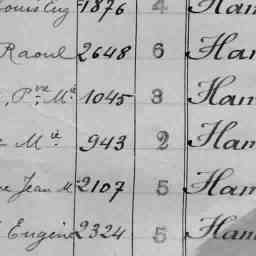 Louis Eug 1876 4 Ham
Raoul 2648 6 Ham
, Pre Mie 1045 3 Ham
Mie 943 2 Ham
Jean M 2107 5 Ham
Eugène 2324 5 Ham